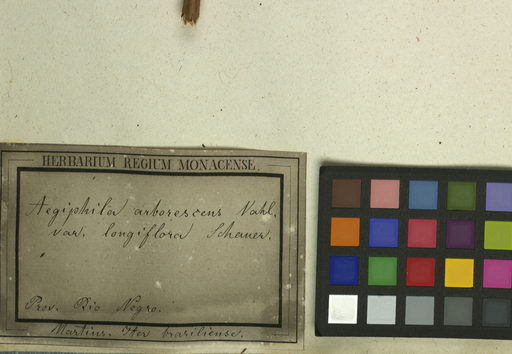 HERBARIUM REGIUM MONACENSE.
Aegiphila arborescens Vahl.
var. longiflora Schauer.
Prov. Rio Negro.
Martius. Iter brasiliense.